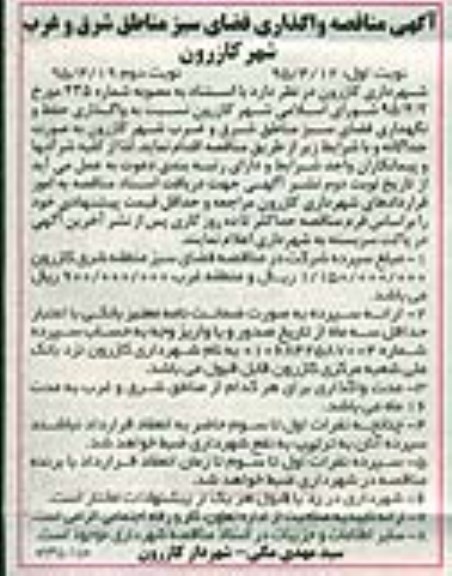 آگهی مناقصه واگذاری فضای سبز مناطق شرق و غرب
شهر کازرون
نوبت اول: ۹۵/۴/۱۲ نوبت دوم ۹۵/۴/۱۹
شهرداری کازرون در نظر دارد با استناد به مصوبه شماره ۲۳۵ مورخ
شورای اسلامی شهر کازرون نسبت به واگذاری حفظ و
نگهداری فضای سبز مناطق شرق و غرب شهر کازرون به صورت
جداگانه و با شرایط زیر از طریق مناقصه اقدام نماید. لذا از کلیه شرکتها
و پیمانکاران واجد شرایط و دارای رتبه بندی دعوت به عمل می آید
از تاریخ نوبت دوم نشر آگهی جهت دریافت اسناد مناقصه به امور
قراردادهای شهرداری کازرون مراجعه و حداقل قیمت پیشنهادی خود
را بر اساس فرم مناقصه حداکثر تا ده روز کاری پس از نشر آخرین آگهی
در پاکت سربسته به شهرداری اعلام نمایند.
۱- مبلغ سپرده شرکت در مناقصه فضای سبز منطقه شرق کازرون
۱/۱۵۰/۰۰۰/۰۰۰ ریال و منطقه غرب ۹۰۰/۰۰۰/۰۰۰ ریال
می باشد.
۲- ارائه سپرده به صورت ضمانت نامه معتبر بانکی با اعتبار
حداقل سه ماه از تاریخ صدور و یا واریز وجه به حساب سپرده
شماره به نام شهرداری کازرون نزد بانک
ملی شعبه مرکزی کازرون قابل قبول می باشد.
۳- مدت واگذاری برای هر کدام از مناطق شرق و غرب به مدت
ماه می باشد.
۴- چنانچه نفرات اول تا سوم حاضر به انعقاد قرارداد نباشند
سپرده آنان به ترتیب به نفع شهرداری ضبط خواهد شد.
۵- سپرده نفرات اول تا سوم تا زمان انعقاد قرارداد با برنده
مناقصه در شهرداری ضبط خواهد شد.
۶- شهرداری در رد یا قبول هر یک از پیشنهادات مختار است.
۷- ارائه تاییدیه صلاحیت از اداره تعاون، کار و رفاه اجتماعی الزامی است.
۸- سایر اطلاعات و جزییات در اسناد مناقصه شهرداری موجود است.
سید مهدی مکی- شهردار کازرون